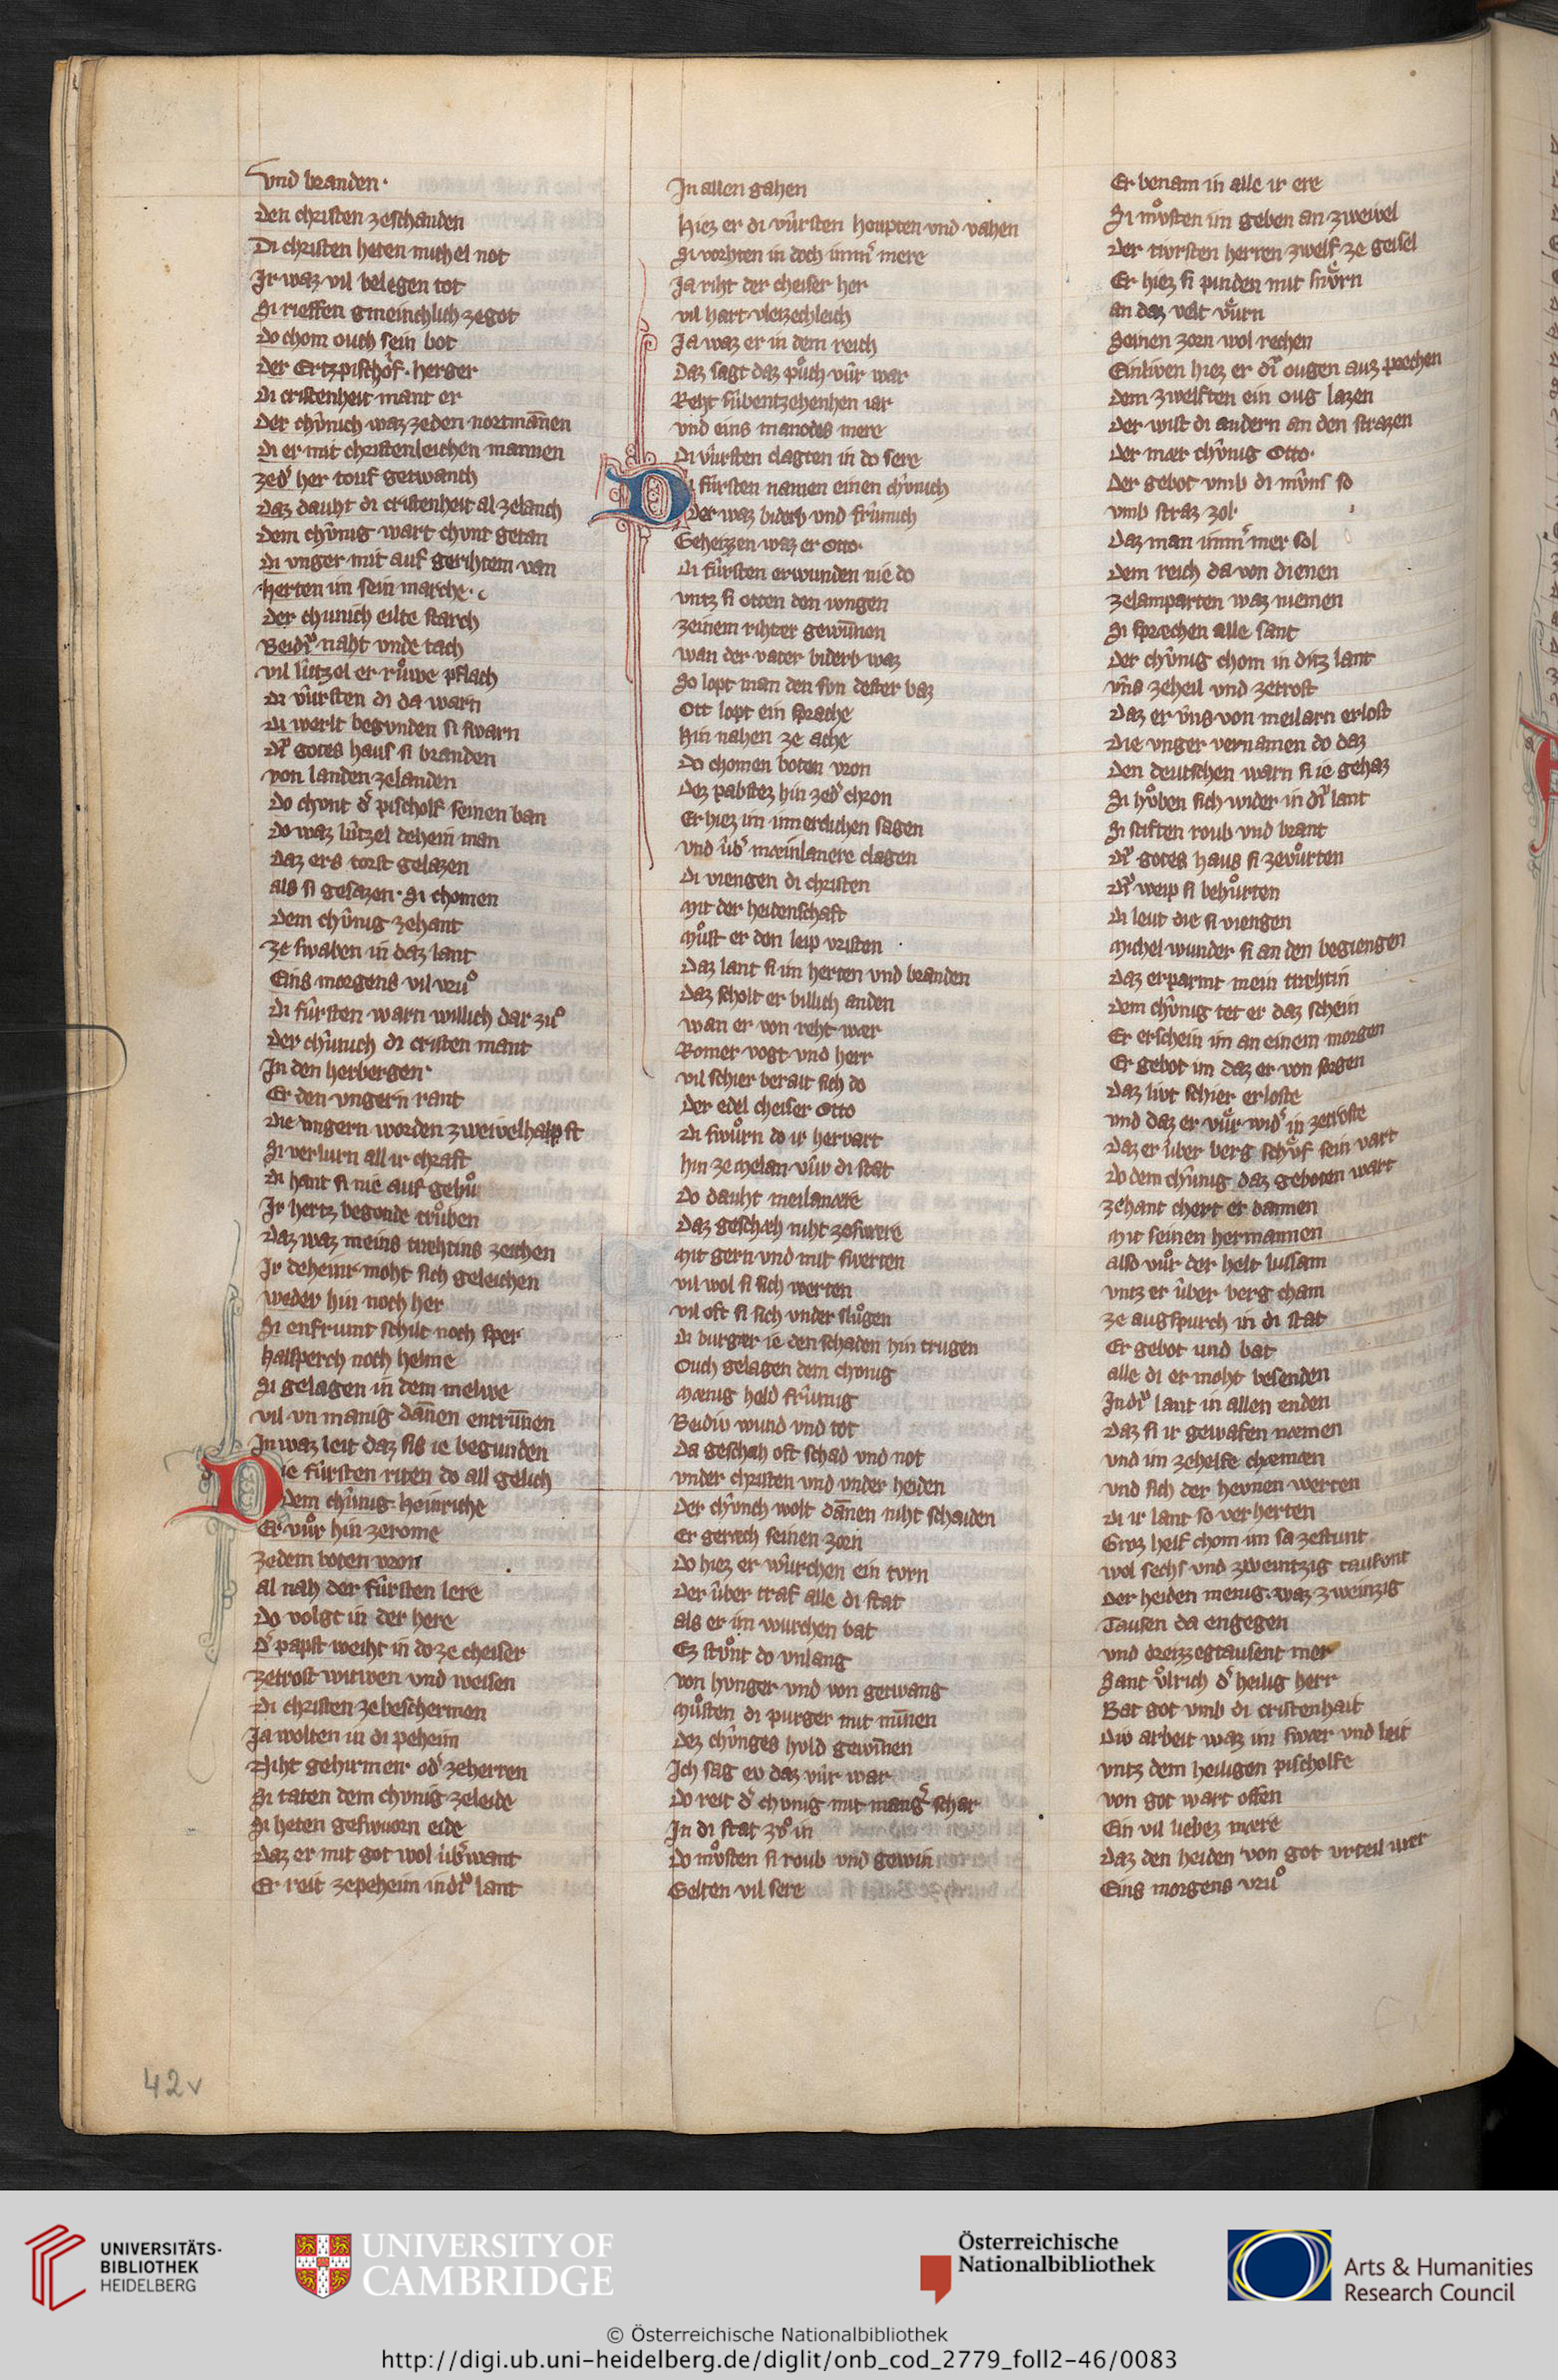 vnd branden·
Den christen zeschanden
Di christen heten michel not
Ir waz vil belegen tot
Si rieffen gmeinchlich zegot
do chom ouch sein bot
der Ertzpischof· herger
di cristenheit mant er
der chûnich waz zeden nortmāñen
di er mit christenleichen mannen
zed͛ her touf getwanch
daz dauht di cristenheit al zelanch
dem chûnig wart chvnt getan
di vnger mit auf gerihtem van
herten im sein marche·
der chunich eilte starch
Beidiv naht vnde tach
vil lûtzel er růwe pflach
di vûrsten di da warn
di werlt begvnden si swarn
div gotes haus si branden
von landen zelanden
do chvnt d͛ pischolf seinen ban
do waz lûtzel dehein man
daz ers torst gelazen
als si gesazen· Si chomen
dem chûnig zehant
ze swaben in daz lant
Eins morgens vil vrů
di fûrsten warn willich dar zů
der chûnich di cristen mant
In den herbergen·
Er den vngern rant
die vngern worden zweivelhalpft
Si verlurn all ir chraft
di hant si nie auf gehů
Ir hertz begonde trůben
daz waz meins trehtins zeichen
Ir deheinr moht sich geleichen
weder hin noch her
Si enfrumt schilt noch sper
halsperch noch helme
Si gelagen in dem melwe
vil vn manig dañen entruñen
In waz leit daz sis ie begunden
Die fûrsten riten do all gelich
dem chûnig· heinriche
Er vůr hin zerome
zedem boten vron
al nah der fûrsten lere
do volgt in der here
d͛ papst weiht in do ze cheiser
zetrost witwen vnd weisen
di christen ze beschermen
Ja wolten in di peheim
Niht gehirmen od͛ zeherren
Si taten dem chvnig zeleide
Si heten geswuorn eide
daz er mit got wol ûb͛want
Er reit zepeheim in div lant
In allen gahen
hiez er di vûrsten houpten vnd vahen
Si vorhten in doch imm͛ mere
Ja riht der cheiser her
vil hart vleizechleich
Ja waz er in dem reich
daz sagt daz půch vûr war
Reht sûbentzehenhen iar
vnd eins manodes mere
di vûrsten clagten in do sere
Di fûrsten namen einen chûnich
der waz biderb vnd frûmich
Geheizzen waz er Otto·
di fûrsten erwunden nie do
vntz si otten den iungen
zeinem rihter gewuñen
wan der vater biderb waz
So lopt man den svn dester baz
Ott lopt ein sprache
hin nahen ze ache
do chomen boten vron
dez pabstez hin zed͛ chron
Er hiez im innerclichen sagen
vnd ûb͛ mæinlanere clagen
di viengen di christen
mit der heidenschaft
můst er den leip vristen
daz lant si im herten vnd branden
daz scholt er billich anden
wan er von reht wær
Romer vogt vnd herr
vil schier berait sich do
der edel cheiser Otto
di swůrn do ir hervart
hin ze melan vûr di stat
do dauht meilanære
daz geschæh niht zeswere
mit gern vnd mit swerten
vil wol si sich werten
vil oft si sich vnder slůgen
di burgær ie den schaden hin trugen
Ouch gelagen dem chonig
mænig held frûmig
Beidiv wund vnd tot
da geschah oft schad vnd not
vnder christen vnd vnder heiden
der chûnch wolt dañen niht schaiden
Er geræch seinen zorn
do hiez er wûrchen ein tvrn
der ûber traf alle di stat
als er im wurchen bat
Ez stůnt do vnlang
von hvnger vnd von getwang
můsten di purger mit minnen
dez chûnges hvld gewinnen
Ich sag ev daz vûr war
do reit d͛ chvnig mit manig͛ schar
In di stat zů in
do můsten si roub vnd gewin
Gelten vil sere
Er benam in alle ir ere
Si můsten im geben an zweivel
der tivrsten herren zwelf ze geisel
Er hiez si pinden mit snůrn
an daz velt vůrn
Seinen zorn wol rechen
Einliven hiez er div ougen auz prechen
dem zwelften ein oug lazen
der wist di andern an den strazen
der mær chûnig Otto·
der gebot vmb di mûns so
vmb straz zol·
daz man imm͛ mer sol
dem reich da von dienen
zelamparten waz niemen
Si spræchen alle sant
der chûnig chom in ditz lant
vns zeheil vnd zetrost
daz er vns von meilarn erlost
die vnger vernamen do daz
den deutschen warn si ie gehaz
Si hůben sich wider in div lant
Si stiften roub vnd brant
div gotes haus si zevůrten
div weip si behůrten
di leut die si viengen
michel wunder si an den begiengen
daz erparmt mein trehtin
dem chûnig tet er daz schein
Er erschein im an einem morgen
Er gebot im daz er von sorgen
daz livt schier erloste
vnd daz er vůr wid͛ in zetroste
daz er ûber berg schůf sein vart
do dem chûnig daz geboten wart
zehant chert er dannen
mit seinen hermannen
also vůr der helt lussam
vntz er ûber berg cham
ze augspurch in di stat
Er gebot vnd bat
alle di er moht besenden
In div lant in allen enden
daz si ir gewafen næmen
vnd im zehelfe chæmæn
vnd sich der hevnen werten
di ir lant so verherten
Groz helf chom im sa zestunt
wol sechs vnd zweintzig tausont
der heiden menig· waz zweinzig
Tausen da engegen
vnd dreizzegtausent mer
Sant ůlrich d͛ heilig herr
Bat got vmb di cristenhait
div arbeit waz im swær vnd leit
vntz dem heiligen pischolfe
von got wart offen
Ein vil liebez mære
daz den heiden von got vrteil wær
Eins morgens vrů
42v
UNIVERSITÄTS-
BIBLIOTHEK
HEIDELBERG
UNIVERSITY OF
CAMBRIDGE
Österreichische
Nationalbibliothek
Arts & Humanities
Research Council
© Österreichische Nationalbibliothek
http://digi.ub.uni-heidelberg.de/diglit/onb_cod_2779_foll2-46/0083